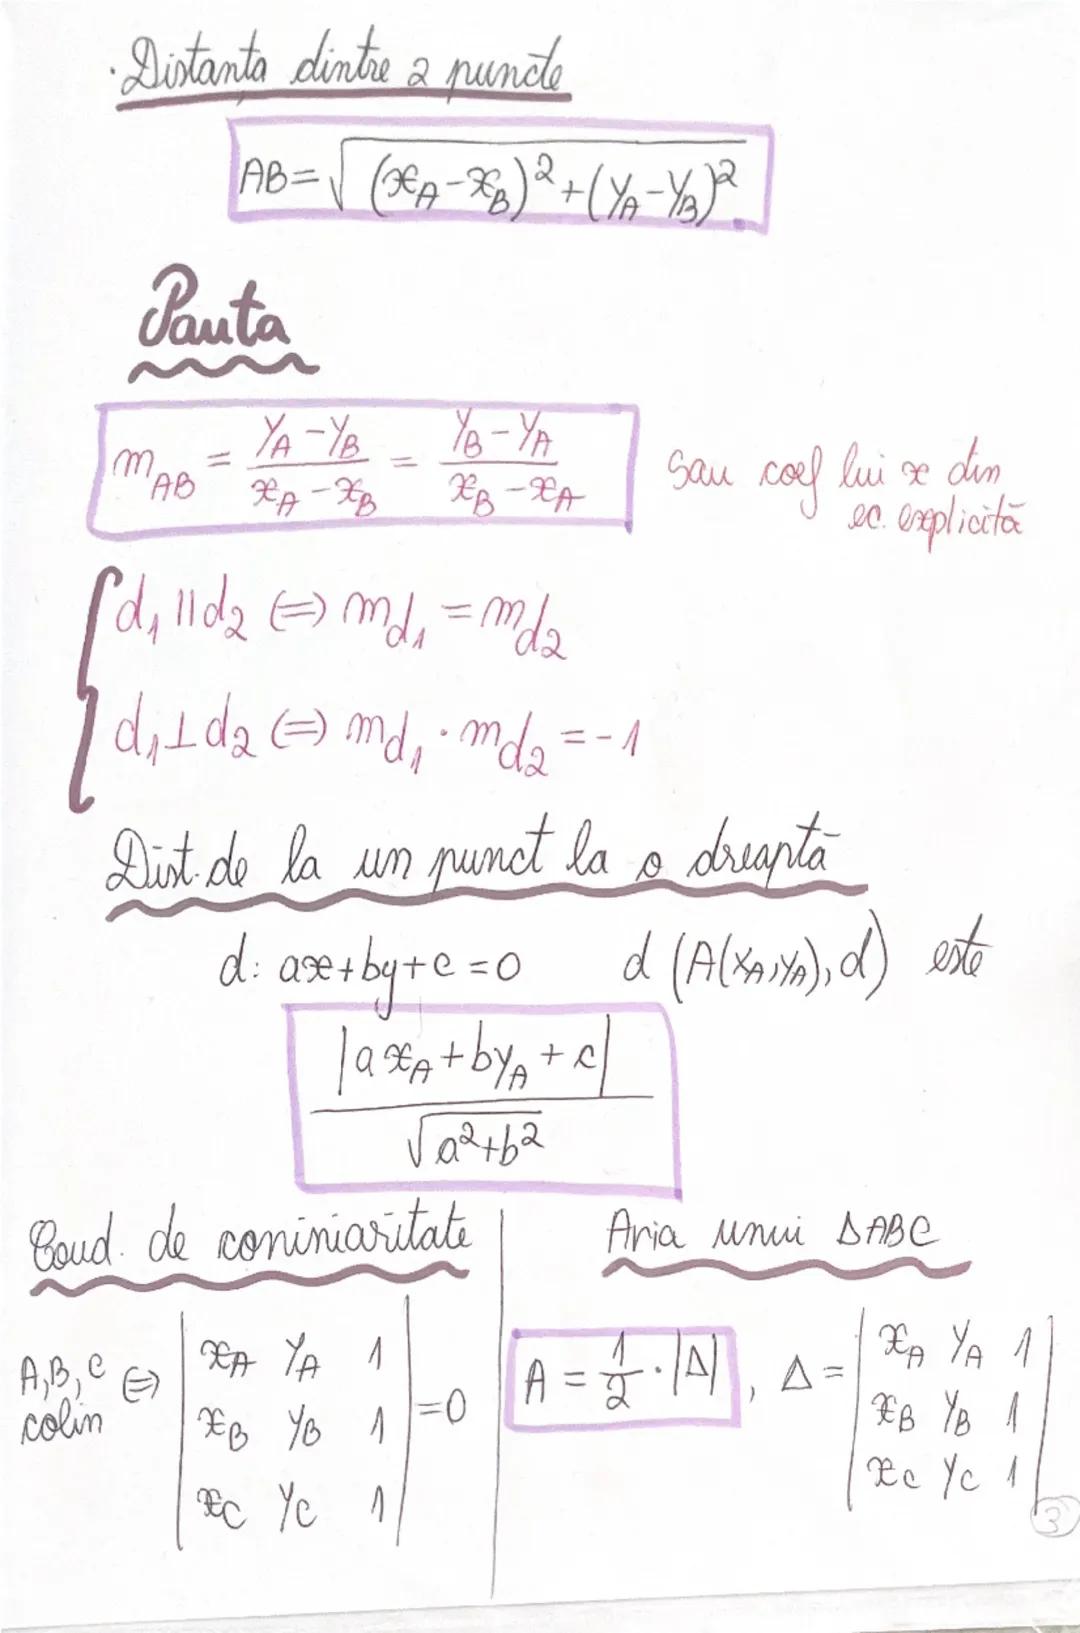 · Distanța dintre 2 puncte
AB = √((x_A - x_B)² + (y_A - y_B)²)
Panta
m_AB = (y_A - y_B)/(x_A - x_B) = (y_B - y_A)/(x_B - x_A)
sau coef lui x din
ec. explicită
d₁ || d₂ (=) m_d₁ = m_d₂
d₁ ⊥ d₂ (=) m_d₁ · m_d₂ = -1
Dist. de la un punct la o dreaptă
d: ax+by+c=0 d (A(x_A, y_A), d) este
|ax_A + by_A + c| / √(a²+b²)
Cond. de coniniaritate
A, B, C colin (=) | x_A y_A 1 |
| x_B y_B 1 | = 0
| x_C y_C 1 |
Aria unui ΔABC
A = 1/2 · |Δ| , Δ = | x_A y_A 1 |
| x_B y_B 1 |
| x_C y_C 1 |
3